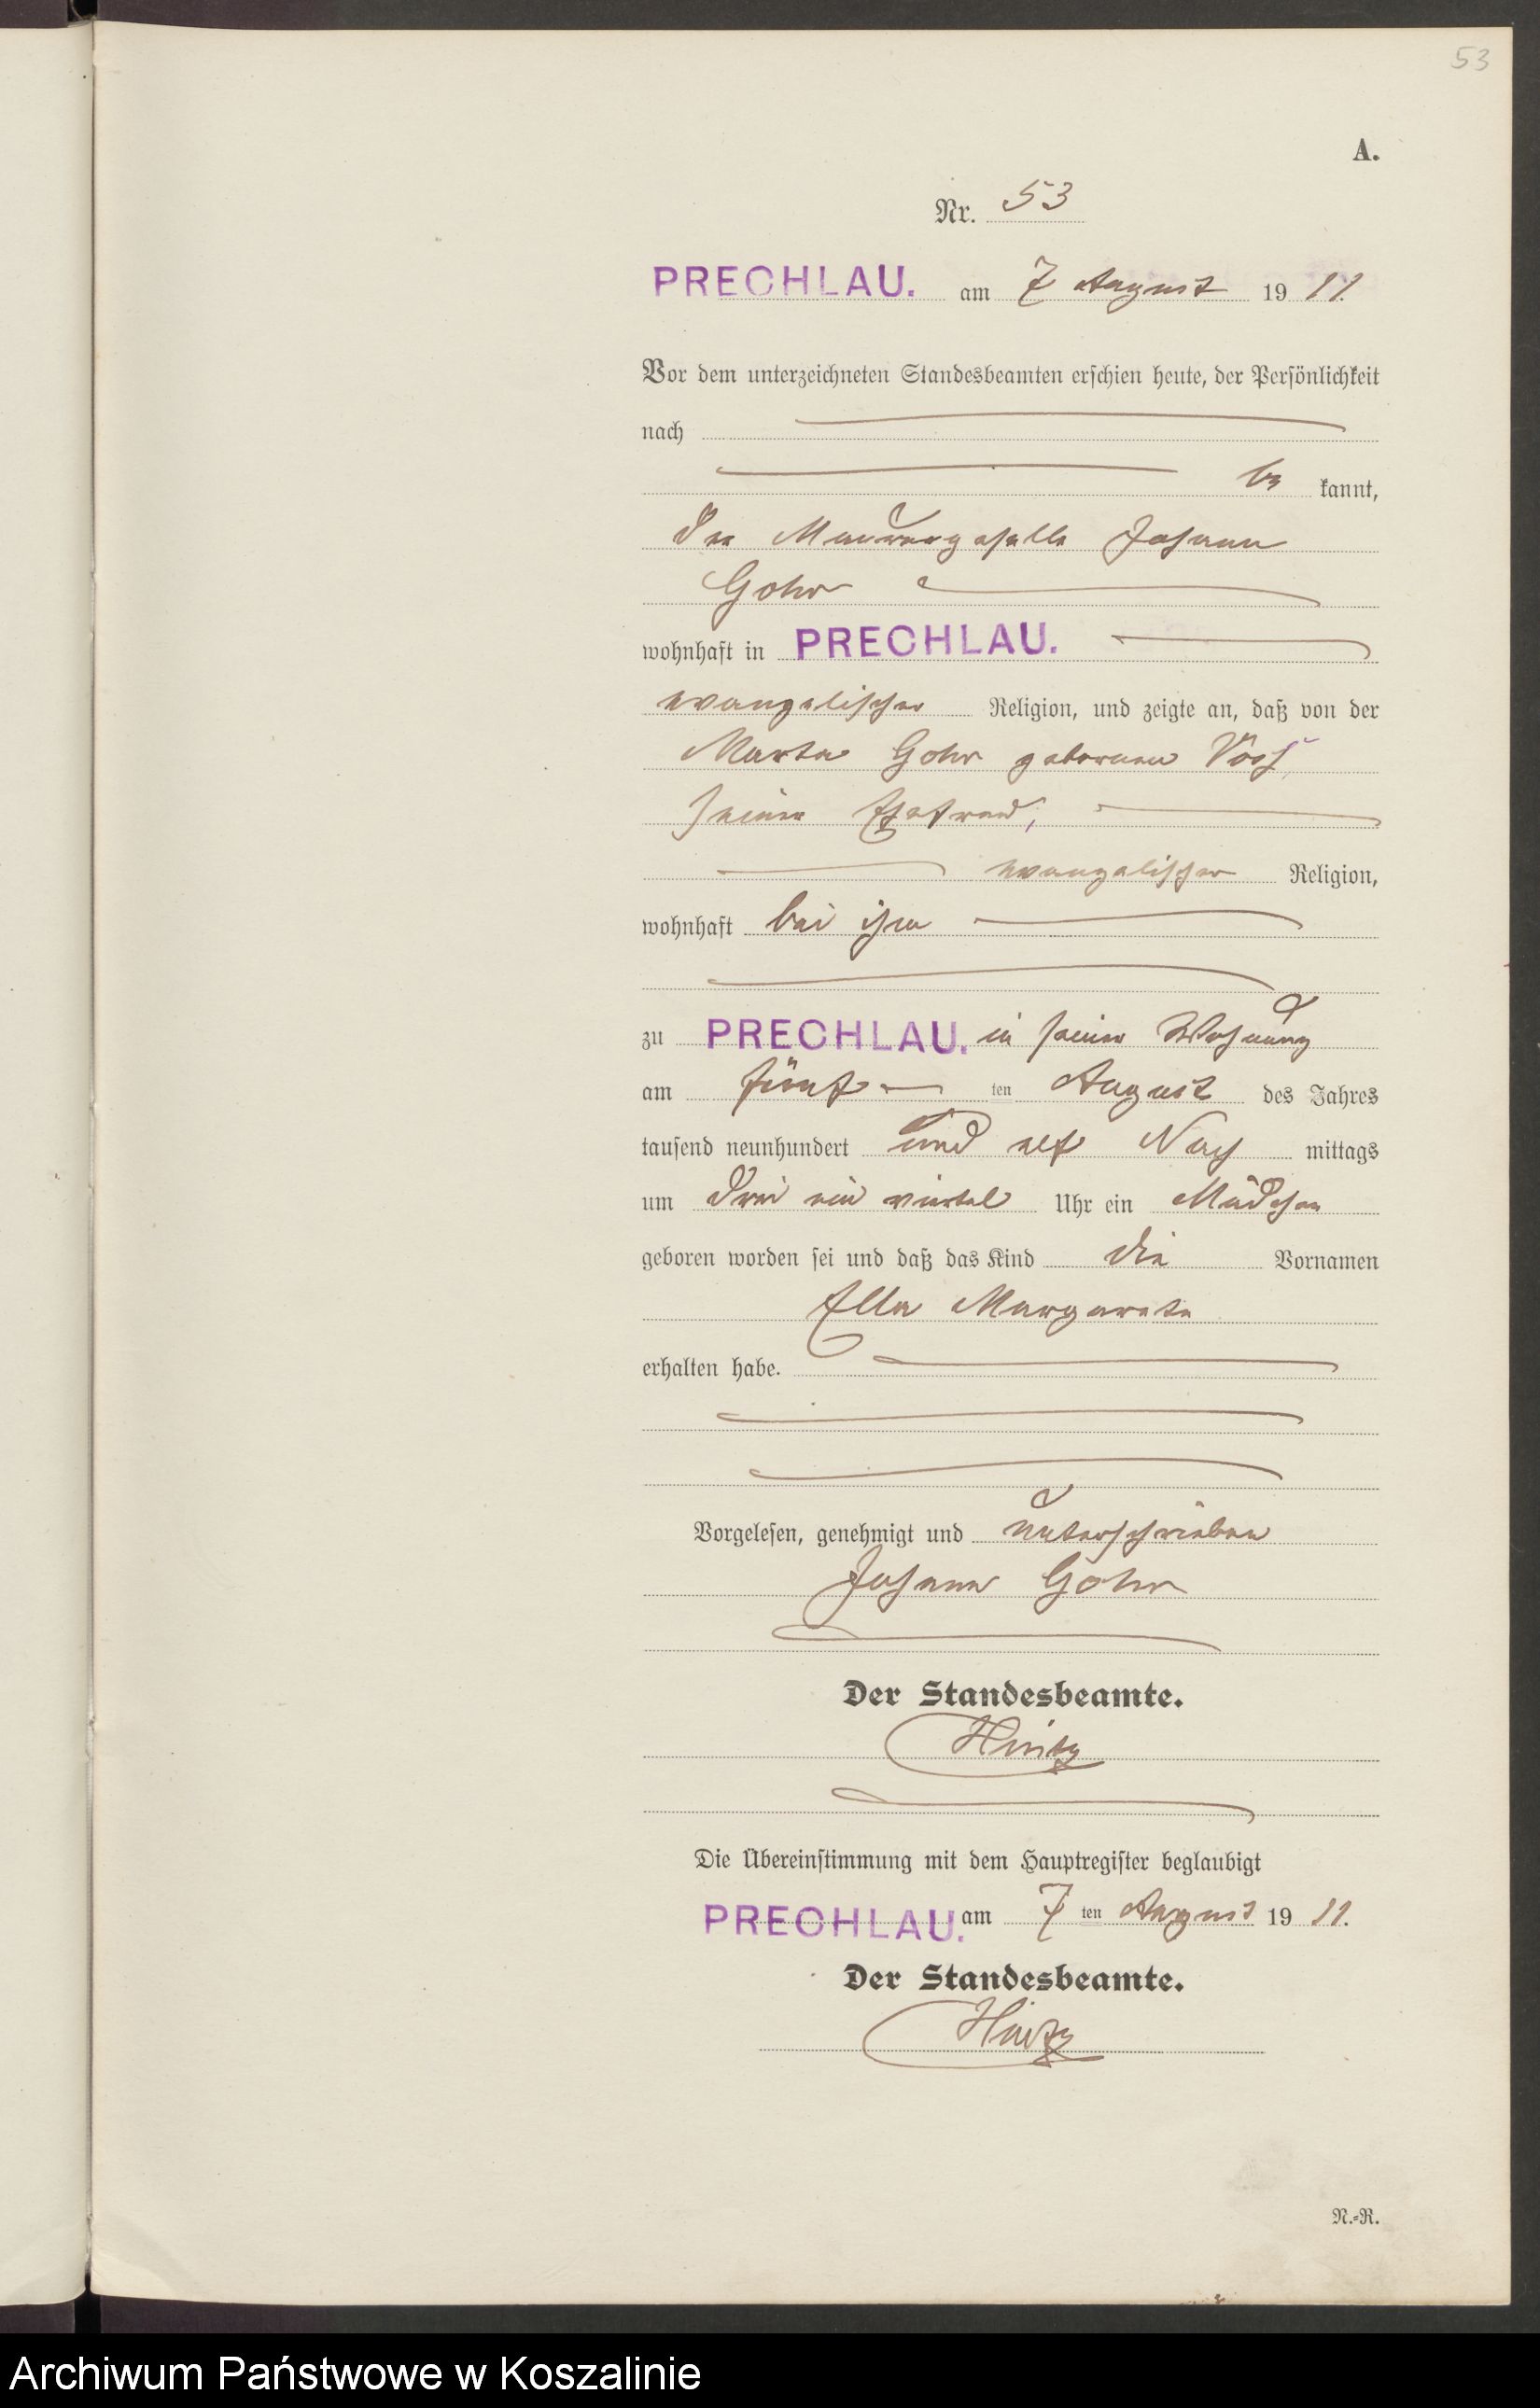 53
A.
Nr. 53
PRECHLAU. am 7 August 19 11.
Vor dem unterzeichneten Standesbeamten erschien heute, der Persönlichkeit
nach
be kannt,
der Maurergeselle Johann
Gohr
wohnhaft in PRECHLAU.
evangelischer Religion, und zeigte an, daß von der
Marta Gohr geborenen Voß,
seiner Ehefrau,
evangelischer Religion,
wohnhaft bei ihm
zu PRECHLAU. in seiner Wohnung
am fünf ten August des Jahres
tausend neunhundert und elf Nach mittags
um drei ein viertel Uhr ein Mädchen
geboren worden sei und daß das Kind die Vornamen
Ella Margarete
erhalten habe.
Vorgelesen, genehmigt und unterschrieben
Johann Gohr
Der Standesbeamte.
Hintz
Die Übereinstimmung mit dem Hauptregister beglaubigt
PRECHLAU. am 7 ten August 19 11.
Der Standesbeamte.
Hintz
N.-R.
Archiwum Państwowe w Koszalinie